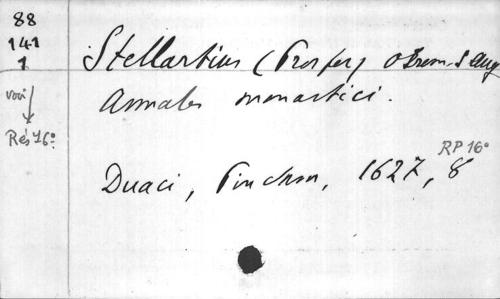 88
141
1
Stellartius (Prosper) O Frem. S Aug
Annales monastici.
voir
Rés 16°
RP 16°
Duaci, Pinchon, 1627, 8